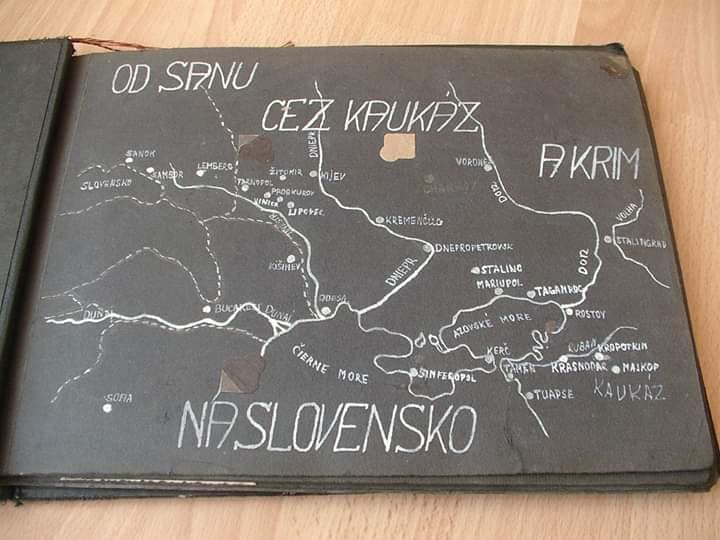 OD SANU
CEZ KAUKÁZ
A KRIM
SANOK
SLOVENSKO
SAMBOR
LEMBERG
TARNOPOL
ŽITOMIR
PROSKUROV
VINICA
LIPOVEC
KIJEV
DNIEPR
CHARKOV
VORONEŽ
DON
VOLHA
STALINGRAD
KREMENČUG
DNEPROPETROVSK
DNIEPR
STALINO
MARIUPOL
TAGANROG
DON
ROSTOV
KIŠINEV
ODESA
DUNAJ
BUCAREST
DUNAJ
AZOVSKÉ MORE
ČIERNE MORE
SIMFEROPOL
KERČ
TAMAN
KUBAŇ
KROPOTKIN
KRASNODAR
MAJKOP
TUAPSE
KAUKÁZ
SOFIA
NA SLOVENSKO